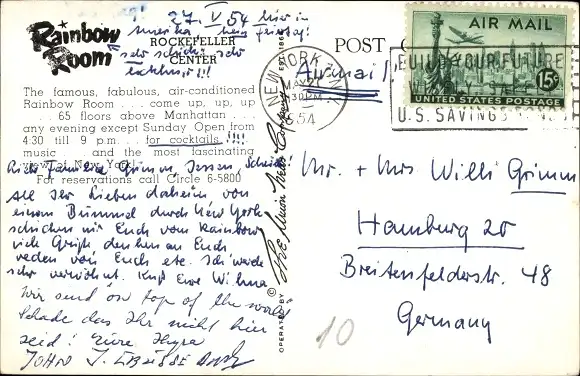 27. V 54 hier in
Amerika
Rainbow Room
ROCKEFELLER
CENTER
sehr schick! sehr
exklusiv!!!
The famous, fabulous, air-conditioned
Rainbow Room . . . come up, up, up
. . . 65 floors above Manhattan . . .
any evening except Sunday Open from
4:30 till 9 p.m. . . . for cocktails !!!!
music . . . and the most fascinating
view of New York!
For reservations call Circle 6-5800
Familie Grimm, Jessen,
all Ihr Lieben daheim von
einem Bummel durch New York
schicken wir Euch vom Rainbow
viele Grüße, denken an Euch
reden von Euch etc. Ich werde
sehr verwöhnt. Kuß Eure Wilma
Wir send on top of the world
Schade das Ihr nicht hier
seid! Eure
JOHN J.
EST. 1865
OPERATED BY
©
POST
Airmail
NEW YORK
MAY
30 PM
1954
BUILD YOUR FUTURE
U.S. SAVINGS BONDS
AIR MAIL
15¢
UNITED STATES POSTAGE
Mr. + Mrs Willi Grimm
Hamburg 20
Breitenfelderstr. 48
Germany
10